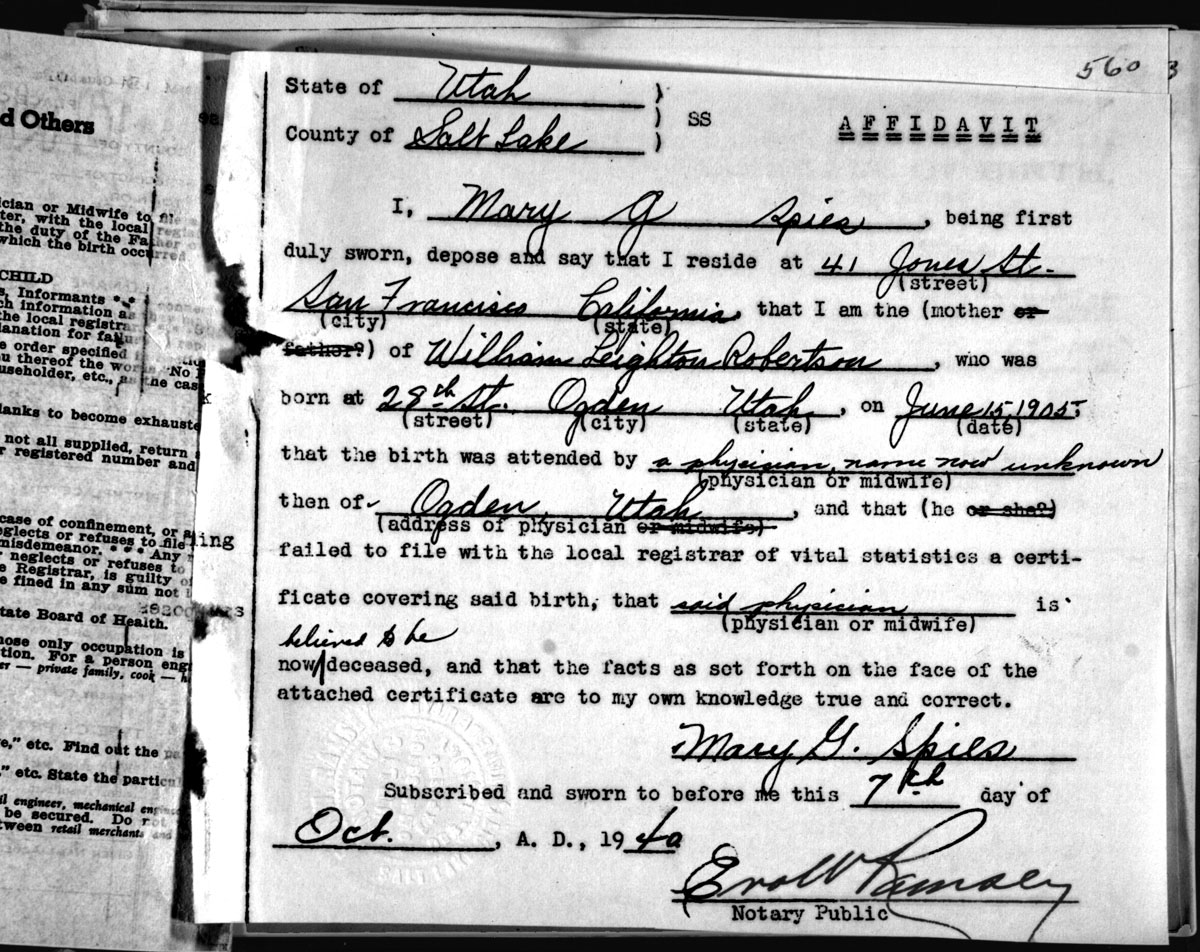 560
State of Utah )
) SS
County of Salt Lake )
AFFIDAVIT
I, Mary G Spies, being first
duly sworn, depose and say that I reside at 41 Jones St.
(street)
San Francisco California, that I am the (mother or
(city) (state)
father?) of William Leighton Robertson, who was
born at 28th St. Ogden Utah, on June 15, 1905
(street) (city) (state) (date)
that the birth was attended by a physician, name now unknown
(physician or midwife)
then of Ogden, Utah, and that (he or she?)
(address of physician or midwife)
failed to file with the local registrar of vital statistics a certi-
ficate covering said birth, that said physician is
(physician or midwife)
believed to be
now deceased, and that the facts as set forth on the face of the
attached certificate are to my own knowledge true and correct.
Mary G. Spies
Subscribed and sworn to before me this 7th day of
Oct., A. D., 1940
Notary Public
d Others
ician or Midwife to file
ter, with the local regis
the duty of the Father
which the birth occurred
CHILD
s, Informants
ch information as
the local registr
lanation for failu
e order specified
u thereof the wor No
useholder, etc., as the cas
lanks to become exhauste
not all supplied, return
r registered number and
case of confinement, or
eglects or refuses to file
misdemeanor. * * * Any
r neglects or refuses to
e Registrar, is guilty of
e fined in any sum not
tate Board of Health.
nose only occupation is
tion. For a person eng
er — private family, cook —
e," etc. Find out the
," etc. State the particu
il engineer, mechanical engine
be secured. Do not
tween retail merchants and